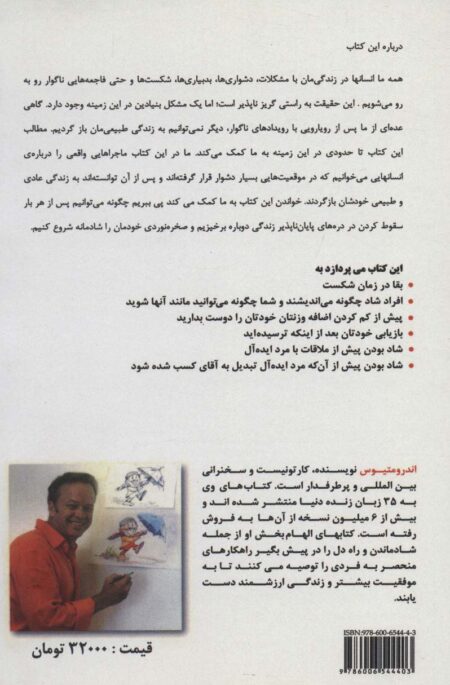 درباره این کتاب
همه ما انسانها در زندگی‌مان با مشکلات، دشواری‌ها، بدبیاری‌ها، شکست‌ها و حتی فاجعه‌هایی ناگوار رو به
رو می‌شویم . این حقیقت به راستی گریز ناپذیر است؛ اما یک مشکل بنیادین در این زمینه وجود دارد. گاهی
عده‌ای از ما پس از رویارویی با رویدادهای ناگوار، دیگر نمی‌توانیم به زندگی طبیعی‌مان باز گردیم. مطالب
این کتاب تا حدودی در این زمینه به ما کمک می‌کند. ما در این کتاب ماجراهایی واقعی را درباره‌ی
انسانهایی می‌خوانیم که در موقعیت‌هایی بسیار دشوار قرار گرفته‌اند و پس از آن توانسته‌اند به زندگی عادی و
طبیعی خودشان بازگردند. خواندن این کتاب به ما کمک می کند پی ببریم چگونه می‌توانیم پس از هر بار
سقوط کردن در دره‌های پایان‌ناپذیر زندگی دوباره برخیزیم و صخره‌نوردی خودمان را شادمانه شروع کنیم.
این کتاب می پردازد به
• بقا در زمان شکست
• افراد شاد چگونه می‌اندیشند و شما چگونه می‌توانید مانند آنها شوید
• پیش از کم کردن اضافه وزنتان خودتان را دوست بدارید
• بازیابی خودتان بعد از اینکه ترسیده‌اید
• شاد بودن پیش از ملاقات با مرد ایده‌آل
• شاد بودن پیش از آن‌که مرد ایده‌آل تبدیل به آقای کسب شده شود
اندرومتیوس نویسنده، کارتونیست و سخنرانی
بین المللی و پرطرفدار است. کتاب‌های وی
به ۳۵ زبان زنده دنیا منتشر شده اند و
بیش از ۶ میلیون نسخه از آن‌ها به فروش
رفته است. کتابهای الهام بخش او از جمله
شادماندن و راه دل را در پیش بگیر راهکارهای
منحصر به فردی را توصیه می کنند تا به
موفقیت بیشتر و زندگی ارزشمند دست
یابند.
قیمت : ۳۲۰۰۰ تومان
ISBN:978-600-6544-4-3
9786006544403